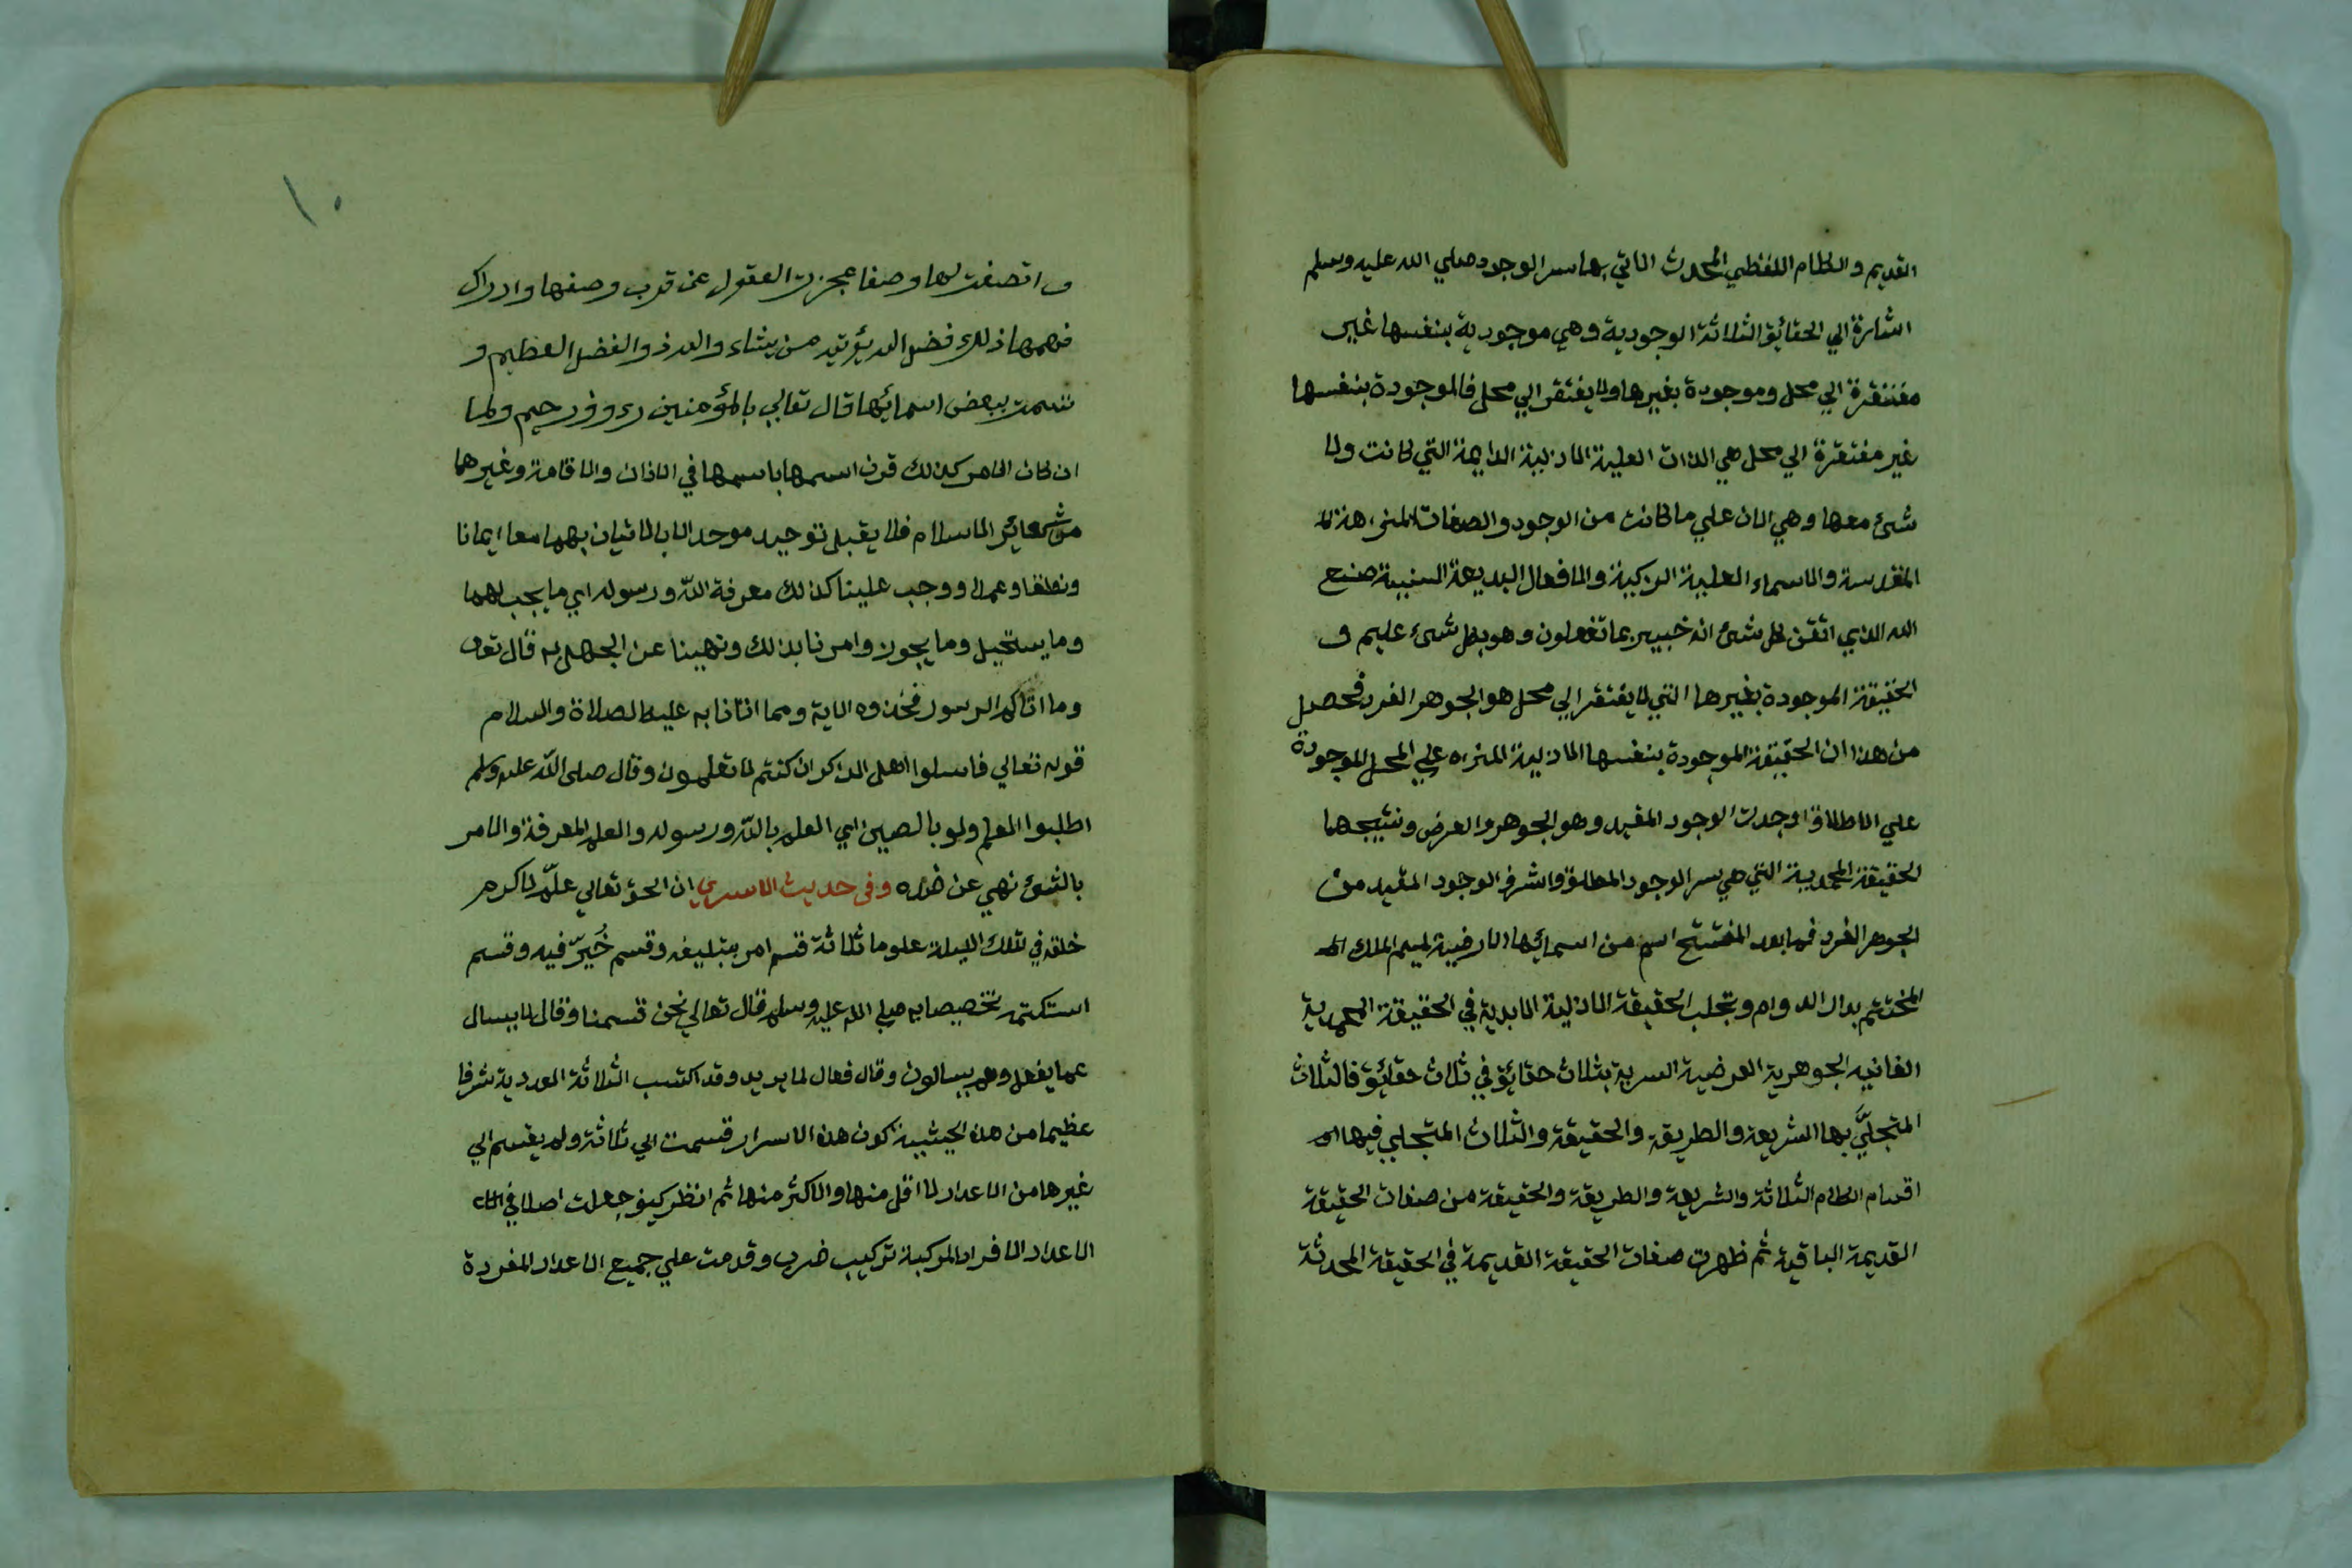 القديم والكلام اللفظي المحدث الاتي بهما سر الوجود صلي الله عليه وسلم
اشارة الي الحقائق الثلاثة الوجودية وهي موجودية بنفسها غير
مفتقرة الي محل وموجودة بغيرها ولا يفتقر الي محل فالموجودة بنفسها
غير مفتقرة الي محل هي الذات العلية الازلية الدايمة التي كانت ولا
شئ معها وهي الان علي ما كانت من الوجود والصفات المنزهة
المقدسة والاسماء العلية الزكية والافعال البديعة السنية صنع
الله الذي اتقن كل شئ انه خبير بما تفعلون وهو بكل شئ عليم و
الحقيقة الموجودة بغيرها التي لا يفتقر الي محل هو الجوهر الفرد فحصل
من هذا ان الحقيقة الموجودة بنفسها الازلية المنزه علي المحل الموجودة
علي الاطلاق اوجدت الوجود المقيد وهو الجوهر والعرض ونتيجهما
الحقيقة المحمدية التي هي سر الوجود المطلق واشرف الوجود المقيد من
الجوهر الفرد فهابعد المفتتح اسم من اسمائها الارضية لميم الملك
المختتم بدال الدوام وتجلت الحقيقة الازلية الابدية في الحقيقة المحمدية
الفانيه الجوهرية العرضية السرية بثلاث حقائق في ثلاث حقائق فالثلاث
المتجلَّي بها الشريعة والطريقة والحقيقة والثلاث المتجلي فيها
اقسام الكلام الثلاثة والشريعة والطريقة والحقيقة من صفات الحقيقة
القديمة الباقية ثم ظهرت صفات الحقيقة القديمة في الحقيقة المحدثة
١٠
واتصفت بها وصفا عجزت العقول عن قرب وصفها وادراك
فهمها ذلك فضل الله يؤتيه من يشاء والله ذو الفضل العظيم و
تسمت ببعض اسمائها قال تعالي بالمؤمنين رءوف رحيم ولما
ان كان الامر كذلك قرن اسمها باسمها في الاذان والاقامة وغيرهما
من شعائر الاسلام فلا يقبل توحيد موحد الا بالاتيان بهما معا ايمانا
ونطقا وعملا ووجب علينا كذلك معرفة الله ورسوله اي ما يجب لهما
وما يستحيل وما يجوز وامرنا بذلك ونهينا عن الجهل به قال تعالى
وما اتاكم الرسول فخذوه الاية ومما اتانا به عليه الصلاة والسلام
قوله تعالي فاسلوا اهل الذكر ان كنتم لا تعلمون وقال صلى الله عليه وسلم
اطلبوا العلم ولو بالصين اي العلم بالله ورسوله والعلم المعرفة والامر
بالشئ نهي عن ضده وفى حديث الاسري ان الحق تعالي علّم اكرم
خلقه في تلك الليلة علوما ثلاثة قسم امر بتبليغه وقسم خُيّر فيه وقسم
استكتمه تخصيصا به صلي الله عليه وسلم قال تعالي نحن قسمنا وقال لا يسال
عما يفعل وهم يسالون وقال فعال لما يريد وقد اكتسب الثلاثة العددية شرفا
عظيما من هذه الحيثية كون هذه الاسرار قسمت الي ثلاثة ولم يقسم الي
غيرها من الاعداد لا اقل منها ولا اكثر منها ثم انظر كيف جعلت اصلا في
الاعداد الافراد المركبة تركيب ضرب وقدمت علي جميع الاعداد المفردة